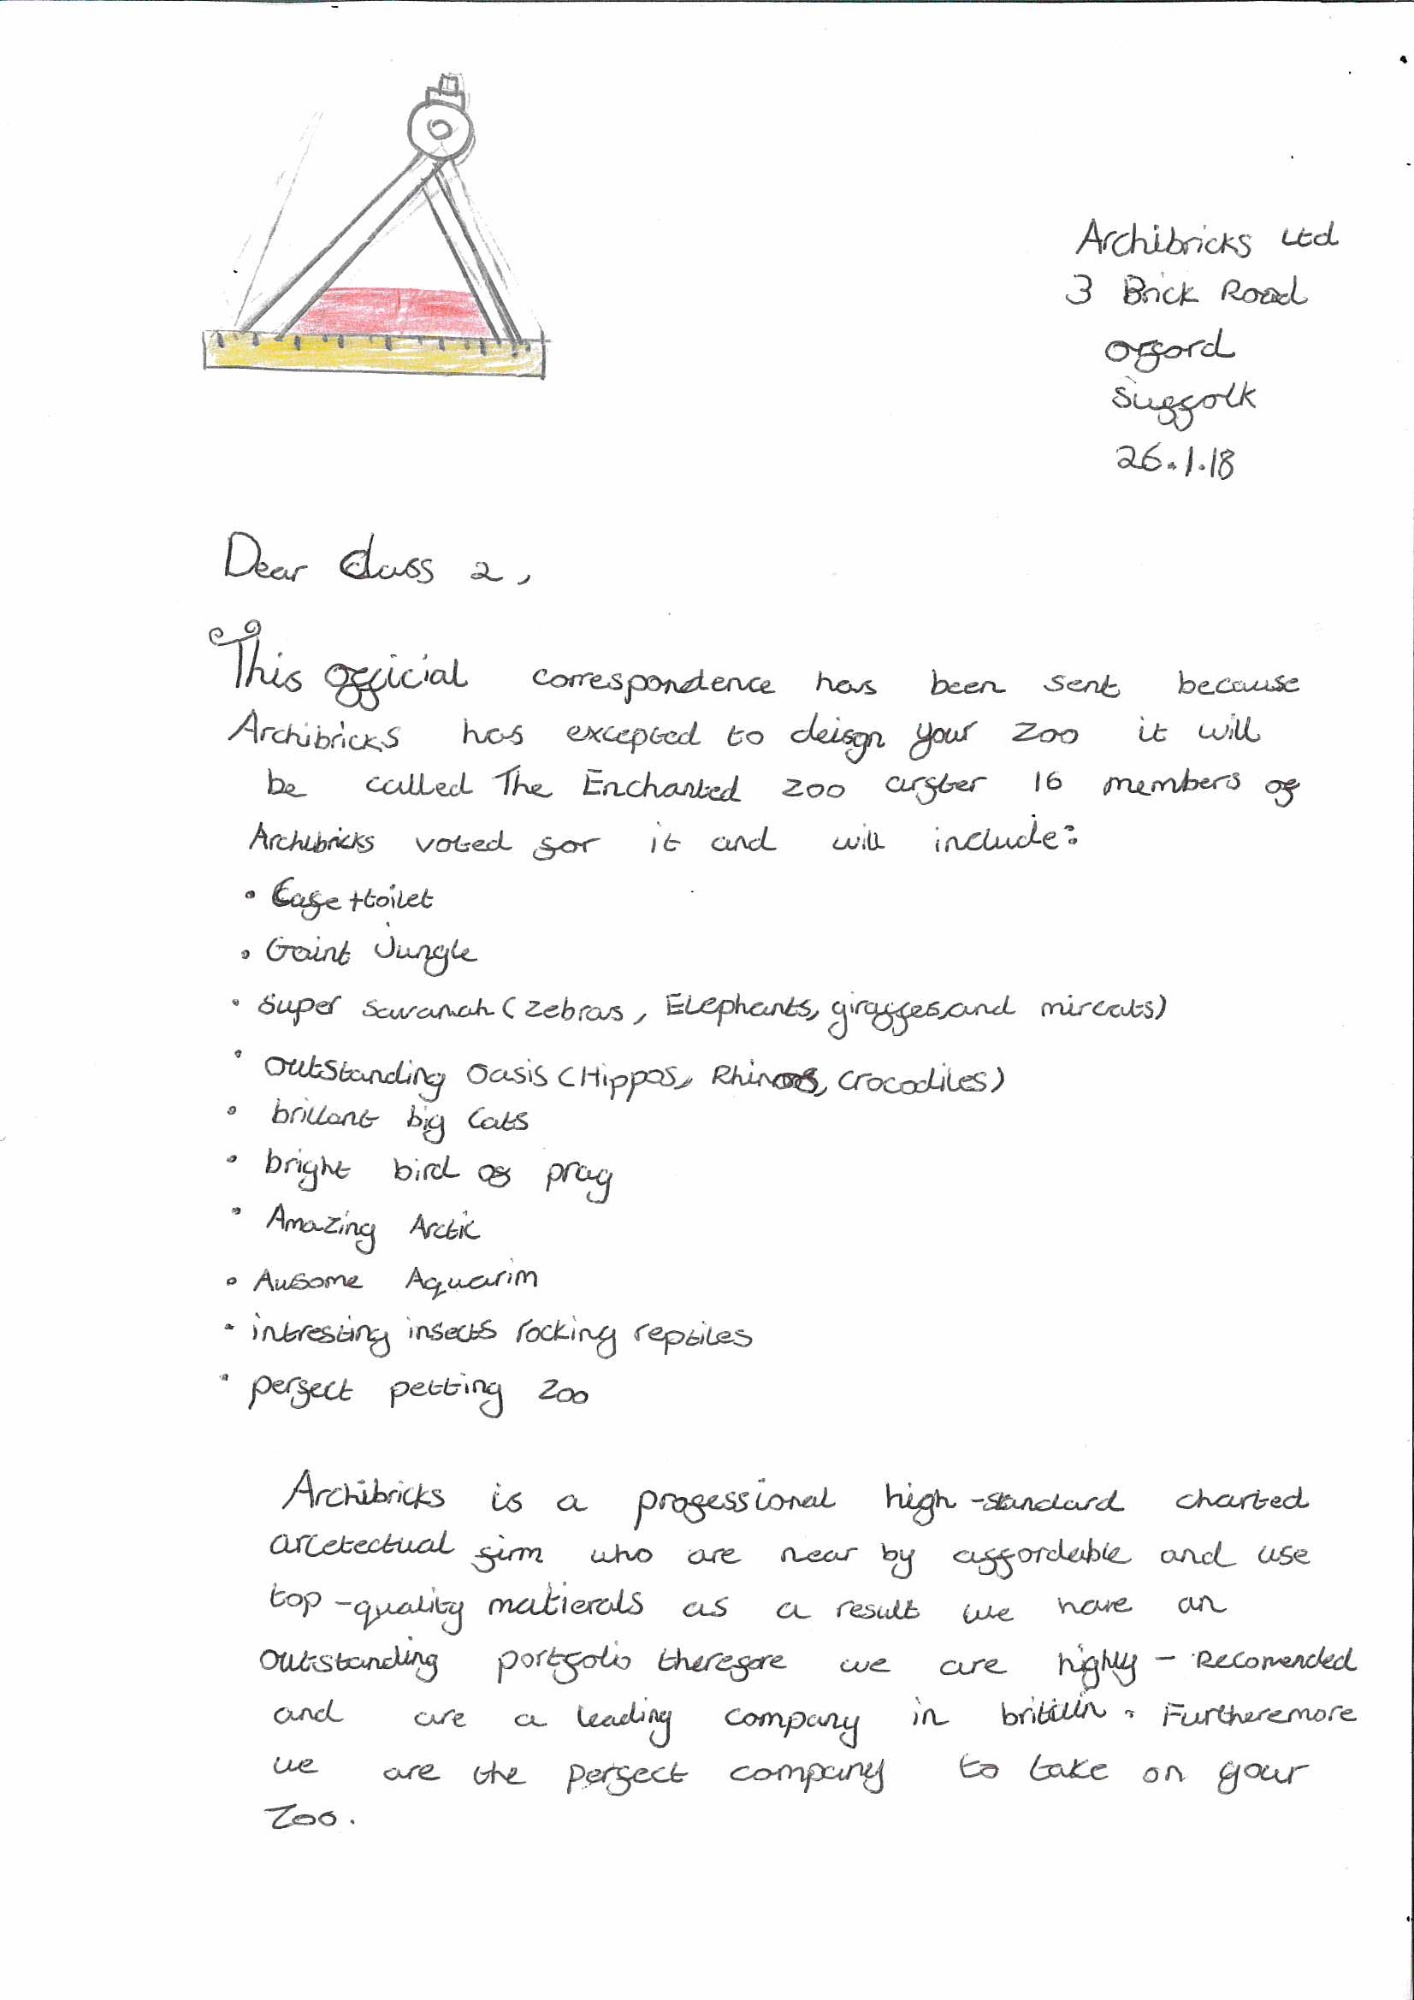 Archibricks Ltd
3 Brick Road
Orford
Suffolk
26.1.18
Dear Class 2,
This official correspondence has been sent because
Archibricks has excepted to deisgn your zoo it will
be called The Enchanted zoo arfter 16 members of
Archibricks voted for it and will include:
• Cafe + toilet
• Gaint Jungle
• Super Savanah (Zebras, Elephants, giraffes, and mircats)
• Outstanding Oasis (Hippos, Rhinos, Crocodiles)
• brillant big Cats
• bright bird of pray
• Amazing Arctic
• Ausome Aquarim
• intresting insects rocking reptiles
• perfect petting zoo
Archibricks is a professional high-standard charted
arcetectual firm who are near by affordable and use
top-quality matierals as a result we have an
outstanding portfolio therefore we are highly - Recomended
and are a leading company in . Furtheremore
we are the perfect company to take on your
Zoo.